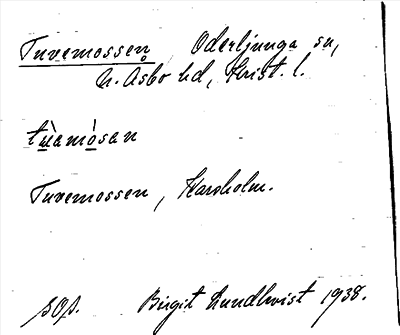 Tuvemossen, Oderljunga sn,
N. Åsbo hd, Krist. l.
tùamòsan
Tuvemossen, Karsholm.
sOs. Birgit Lundkvist 1938.